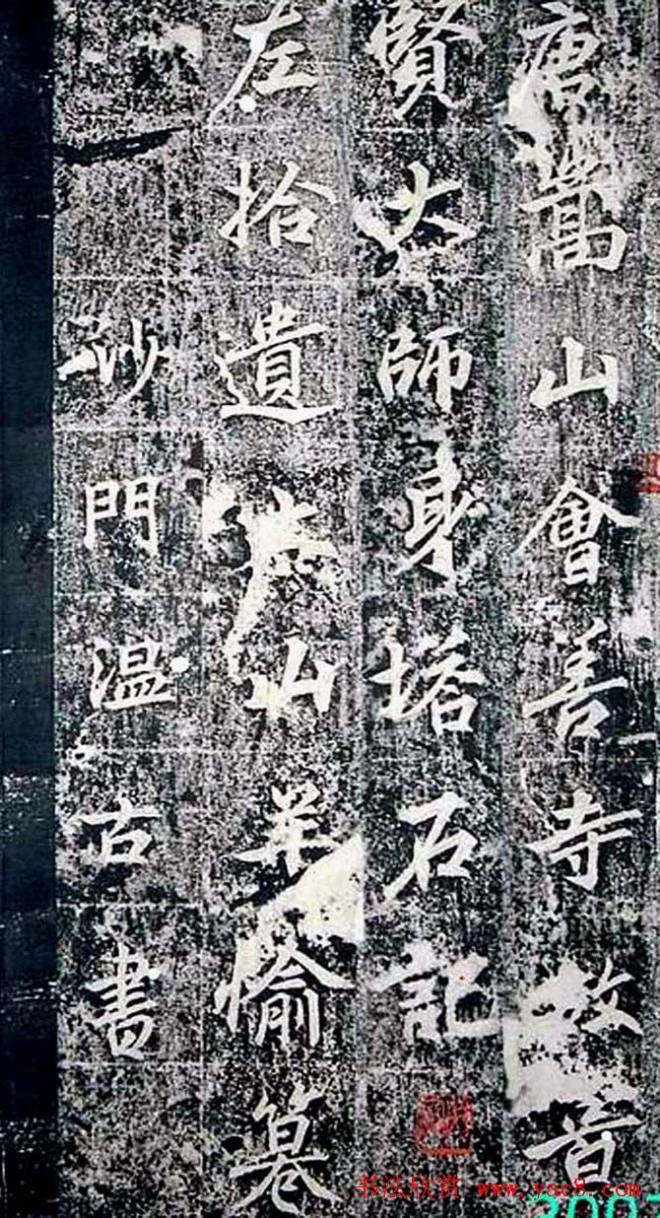 唐嵩山會善寺故景
賢大師身塔石記
左拾遺山羊愉篹
沙門温古書
书法欣赏 www.yac8.com